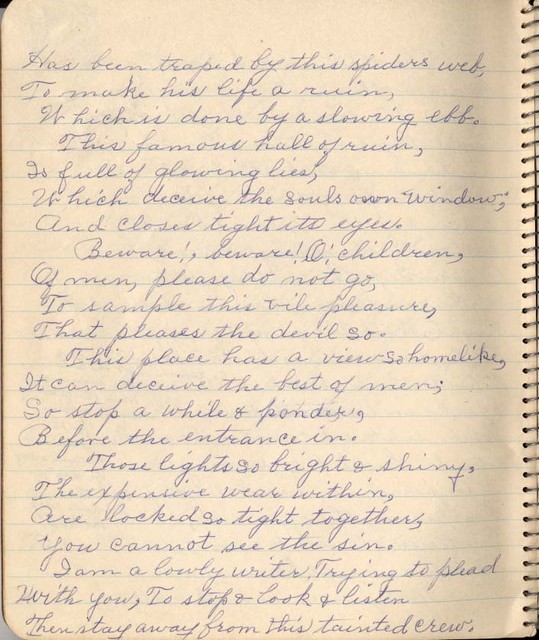 Has been traped by this spiders web,
To make his life a ruin,
Which is done by a slowing ebb.
This famous hall of ruin,
Is full of glowing lies,
Which deceive the souls own "window",
And closes tight its eyes.
Beware!, beware! O! children,
Of men, please do not go,
To sample this vile pleasure,
That pleases the devil so.
This place has a view so homelike,
It can deceive the best of men;
So stop a while & ponder,
Before the entrance in.
Those lights so bright & shiny,
The expensive wear within,
Are locked so tight together,
You cannot see the sin.
I am a lowly writer, Trying to plead
With you, To stop & look & listen
Then stay away from this tainted crew.